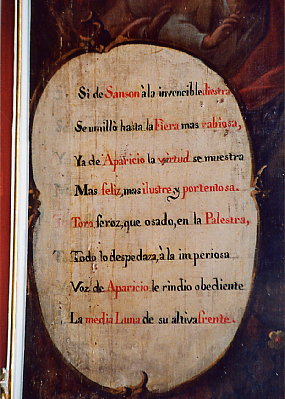 Si de Sanson à la invencible diestra
Se umillò hasta la Fiera mas rabiosa,
Ya de Aparicio la virtud se muestra
Mas feliz, mas ilustre, y portentosa.
Toro feroz, que osado, en la Palestra,
Todo lo despedaza, à la imperiosa
Voz de Aparicio, le rindio obediente
La media Luna de su altiva frente.